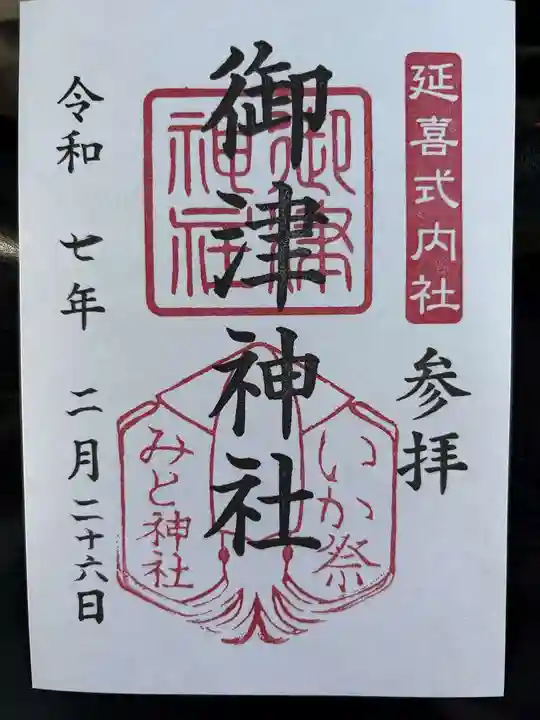 延喜式内社
参拝
御津神社
御津神社
いか祭
みと神社
令和 七年 二月二十六日